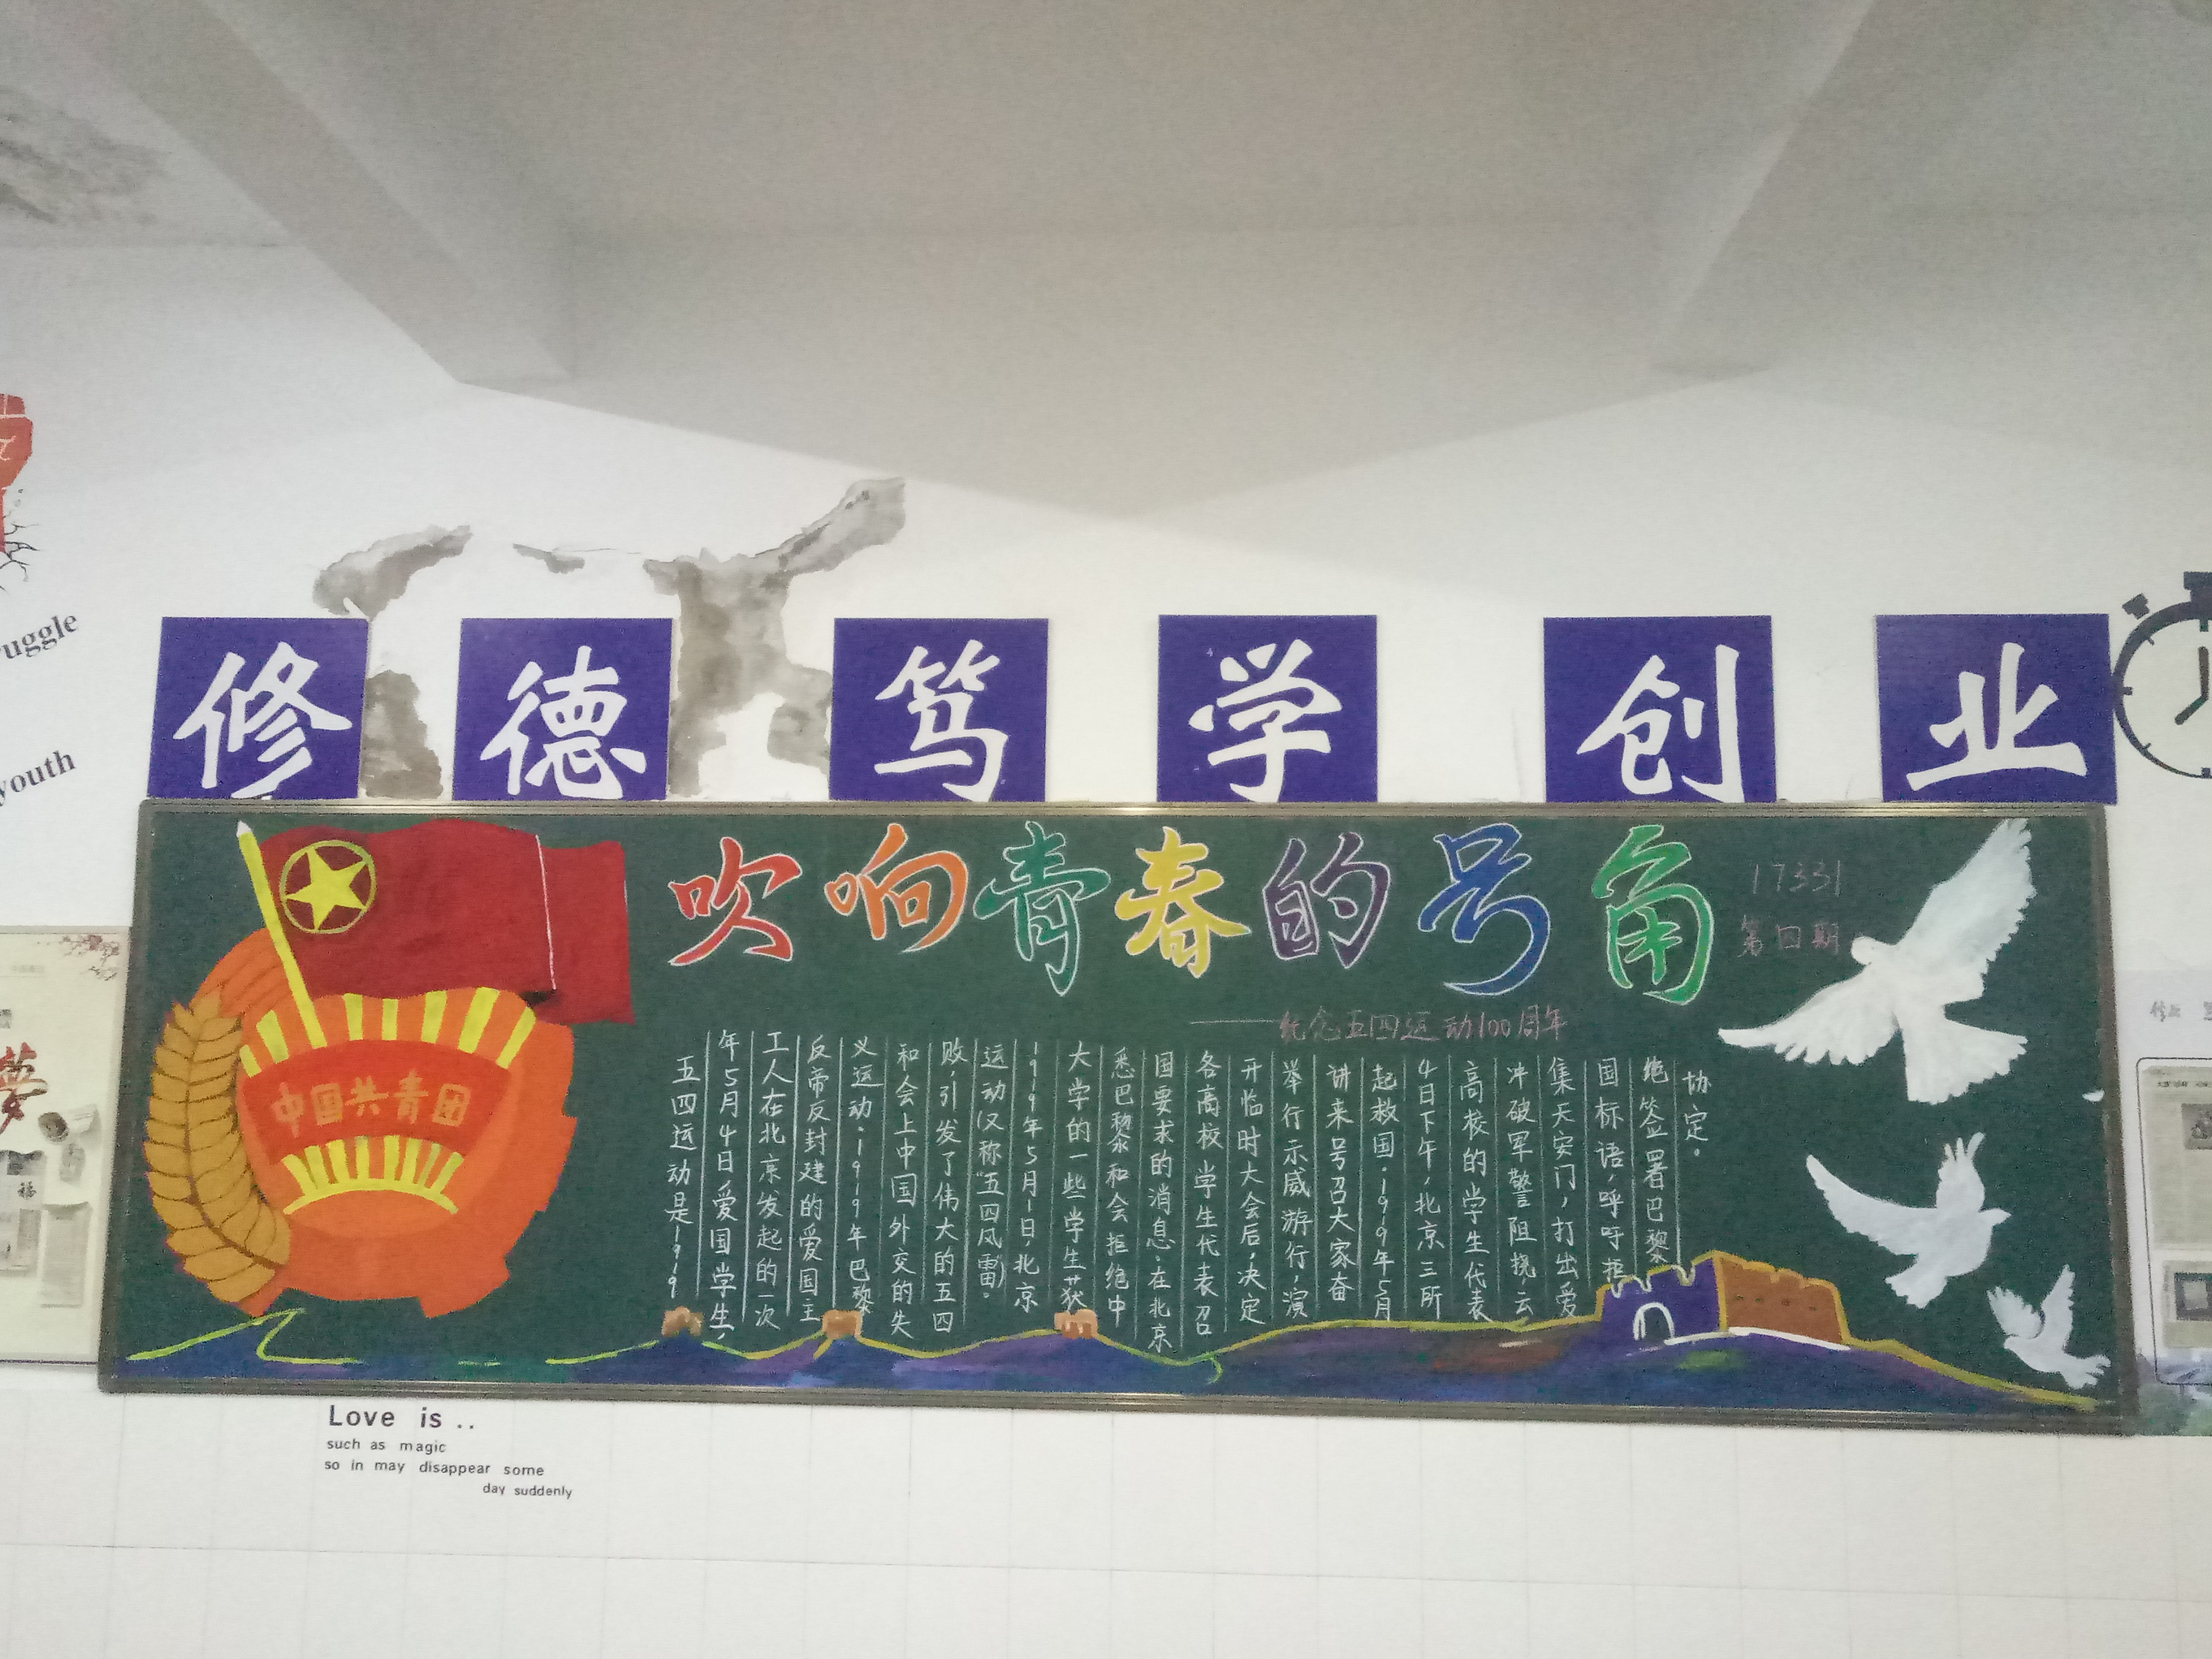 修德笃学创业
吹响青春的号角
17331
第四期
——纪念五四运动100周年
中国共青团
五四运动是1919
年5月4日爱国学生，
工人在北京发起的一次
反帝反封建的爱国主
义运动。1919年巴黎
和会上中国外交的失
败，引发了伟大的五四
运动（又称"五四风雷）。
1919年5月1日，北京
大学的一些学生获
悉巴黎和会拒绝中
国要求的消息。在北京
各高校学生代表召
开临时大会后，决定
举行示威游行，演
讲来号召大家奋
起救国。1919年5月
4日下午，北京三所
高校的学生代表
冲破军警阻挠云
集天安门，打出爱
国标语，呼吁拒
绝签署巴黎
协定。
uggle
youth
Love is ..
such as magic
so in may disappear some
day suddenly
夢
福